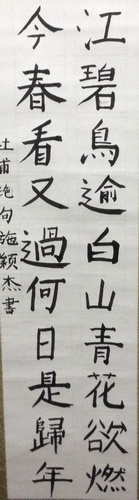 江碧鳥逾白山青花欲燃
今春看又過何日是歸年
杜甫絶句施穎杰書